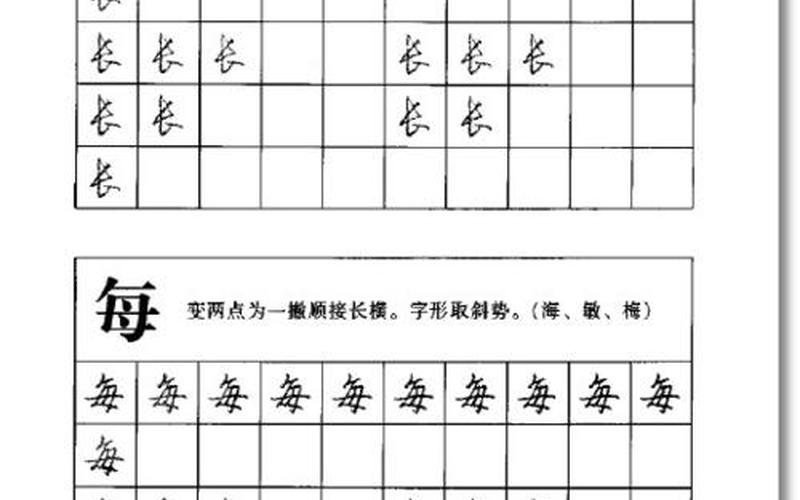 长
长 长 长 长 长 长
长 长 长 长
长
每 变两点为一撇顺接长横。字形取斜势。(海、敏、梅)
每 每 每 每 每 每 每 每 每 每
每